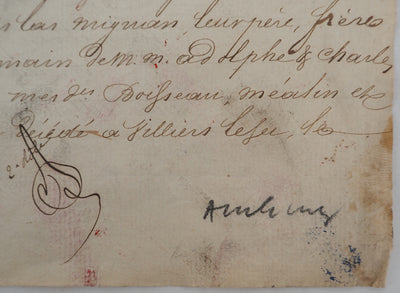 mignan, leur père, frères
main de M. M. adolphe & Charles
mes des Boisseau, méalin et
décédé a Villiers le Sec, le